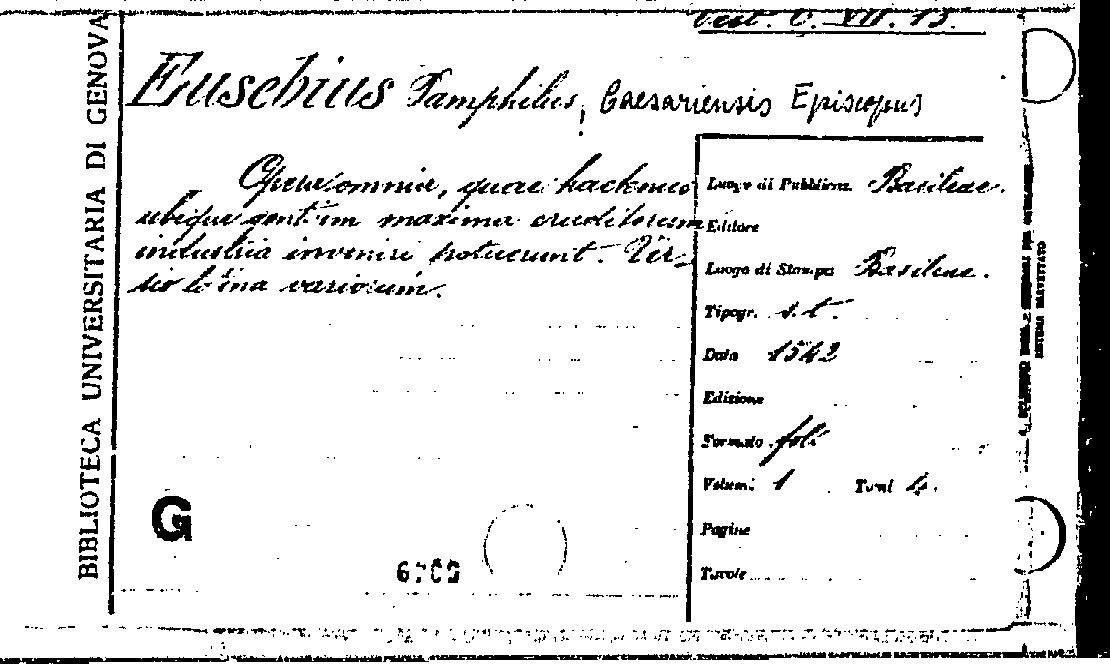 Vest. C. VII. 13.
BIBLIOTECA UNIVERSITARIA DI GENOVA
Eusebius Pamphilus, Caesariensis Episcopus
Opera omnia, quae hactenus
ubique gentium maxima eruditorum
industria inveniri potuerunt. Ver-
sio latina variorum.
Luogo di Pubblicaz. Basileae.
Editore
Luogo di Stampa Basileae.
Tipogr. s.t.
Data 1542
Edizione
Formato fol.
Volumi 1 Tomi 4.
Pagine
Tavole
G